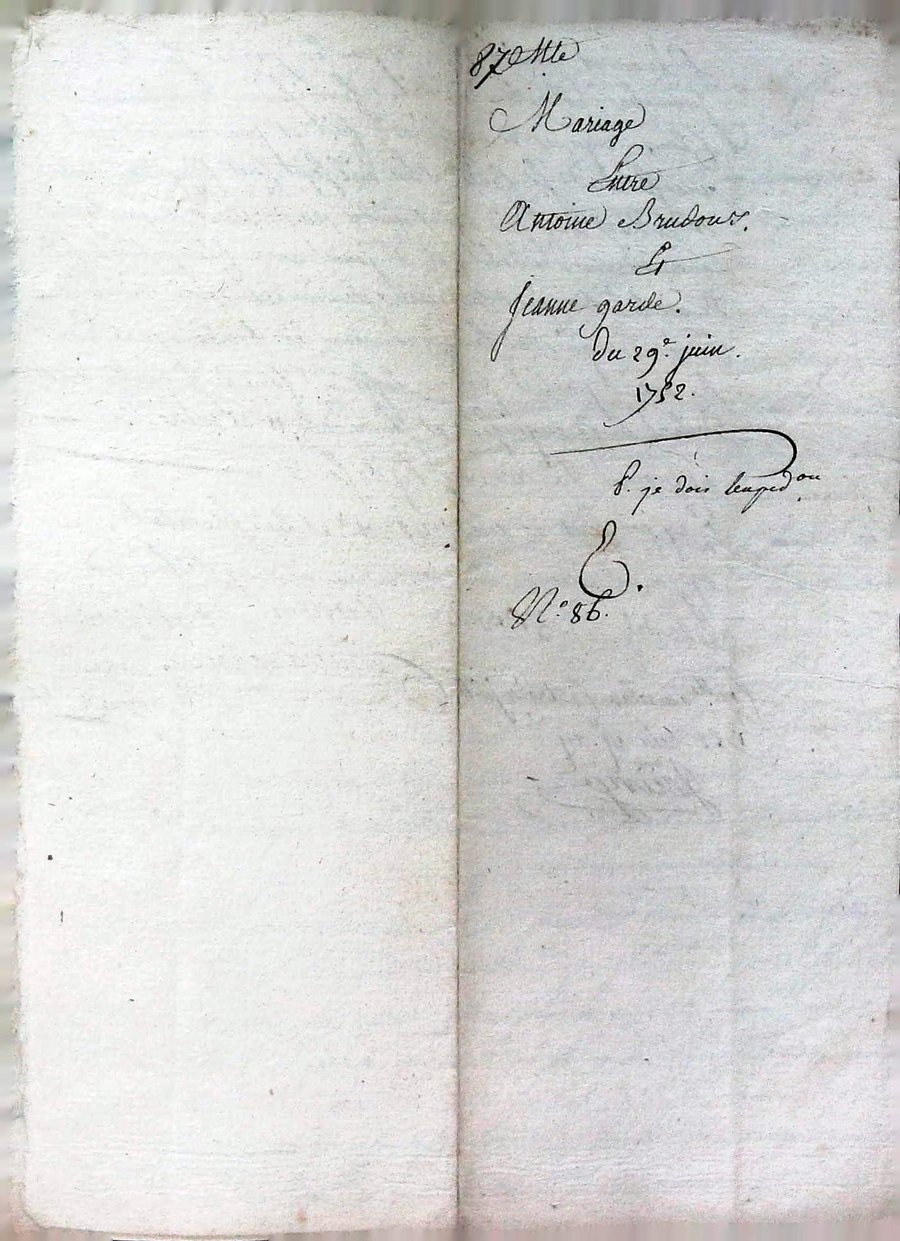 Mariage
Entre
Antoine Brudour.
Et
Jeanne garde.
du 29e. juin.
1752.
P. je dois l'expedon.
No. 86.